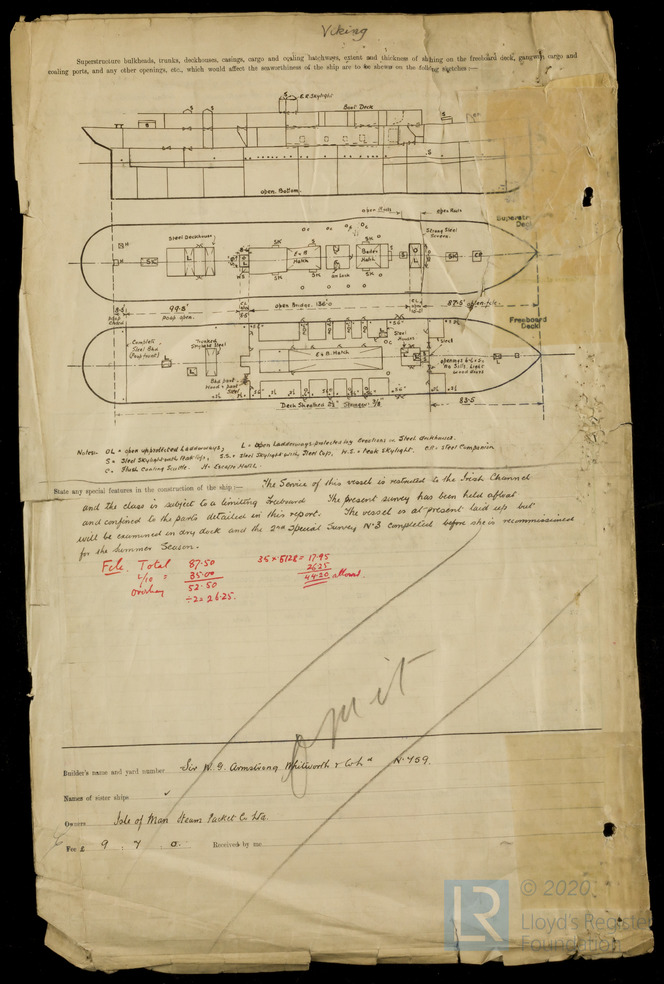 Viking
Superstructure bulkheads, trunks, deckhouses, casings, cargo and coaling hatchways, extent and thickness of sheathing on the freeboard deck, gangway cargo and
coaling ports, and any other openings, etc., which would affect the seaworthiness of the ship are to be shewn on the following sketches :—
E.R Skylight
Boat Deck
open. Bottom.
open Rails
open Rails
Superstr
Deck
Steel Deckhouse
Strong Steel
Screen.
E & B
Hatch
Boiler
Hatch
8·5'
99·5'
Poop open.
open Bridge. 136·0
87·5' open fcle.
Freeboard
Deck
Complete
Steel Bhd
Trunked
Skylight Steel
Steel
Houses
E & B. Hatch
Steel
openings
No Sills. Light
wood doors
Bhd part
Wood & part
Steel
Deck Sheathed 2½" Stringer 3/8"
83·5
Notes. OL = open unprotected Ladderways, L = Open Ladderways protected by erections or Steel deckhouse.
S = Steel Skylight with Flat lids, S.S. = Steel Skylight with Steel Cap, W.S. = Peak Skylight. C.P. = Steel Companion
C = Flush Coaling Scuttle. H = Escape Hatch.
State any special features in the construction of the ship:— The Service of this vessel is restricted to the Irish Channel
and the class is subject to a limiting Freeboard The present survey has been held afloat
and confined to the parts detailed in this report. The vessel is at present laid up but
will be examined in dry dock and the 2nd Special Survey No 3 completed before she is recommissioned
for the Summer Season.
Fcle. Total 87·50 35 × ·5128 = 17·95
4/10 = 35·00 26·25
Overhang 52·50 44·20 allowed.
÷2 = 26·25.
omit
Builder's name and yard number Sir W. G. Armstrong Whitworth & Co Ld No 759.
Names of sister ships ✓
Owners Isle of Man Steam Packet Co Ltd.
Fee £ 9 . 7 . 0. Received by me
© 2020
LR
Lloyd's Register
Foundation